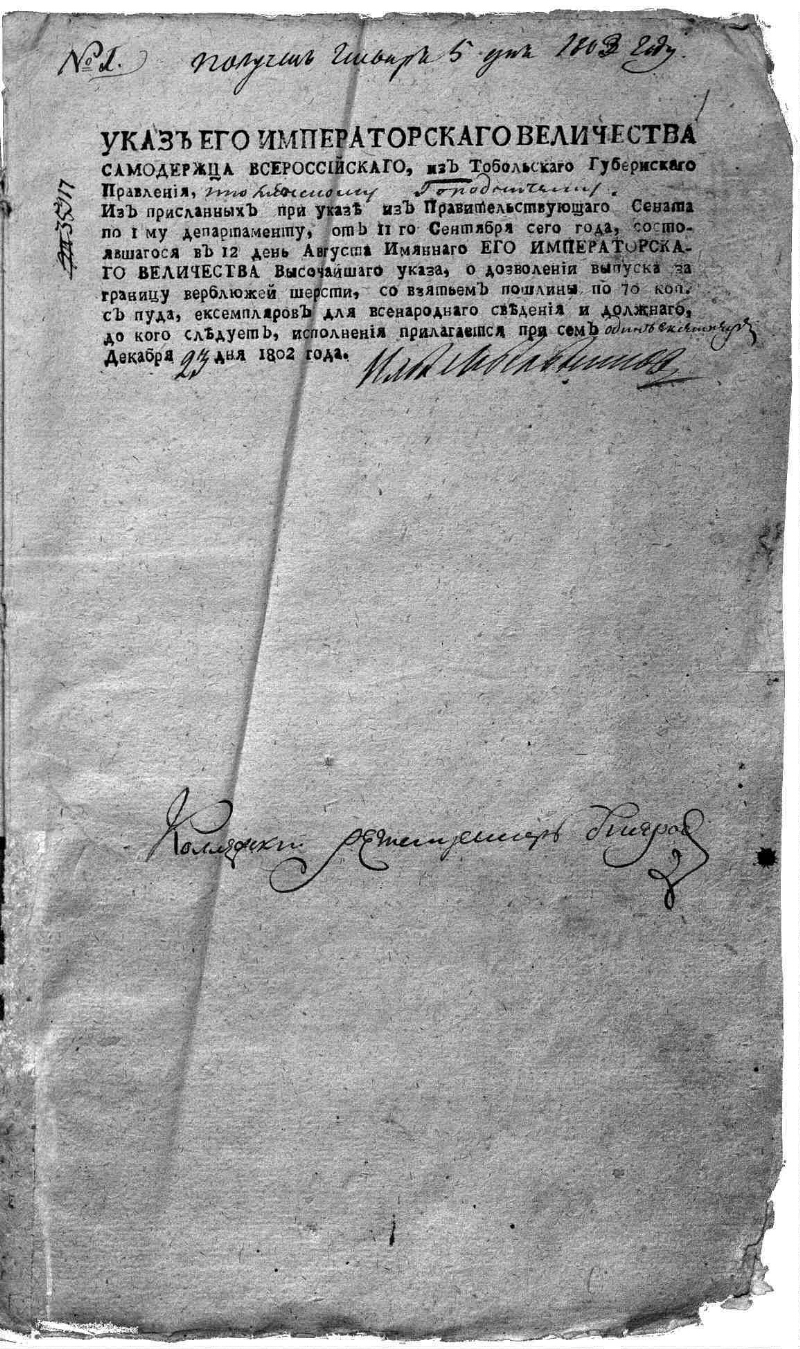 № 1. получен Генваря 5 дня 1803 году.
УКАЗЪ ЕГО ИМПЕРАТОРСКАГО ВЕЛИЧЕСТВА
САМОДЕРЖЦА ВСЕРОССІЙСКАГО, изъ Тобольскаго Губернскаго
Правленія, Городничему.
Изъ присланныхъ при указѣ изъ Правительствующаго Сената
по 1 му департаменту, отъ 11 го Сентября сего года, состо-
явшагося въ 12 день Августа Имяннаго ЕГО ИМПЕРАТОРСКА-
ГО ВЕЛИЧЕСТВА Высочайшаго указа, о дозволеніи выпуска за
границу верблюжей шерсти, со взятьемъ пошлины по 70 коп.
съ пуда, ексемпляровъ для всенароднаго свѣденія и должнаго,
до кого слѣдуетъ, исполненія прилагается при семъ одинъ
Декабря 23 дня 1802 года.